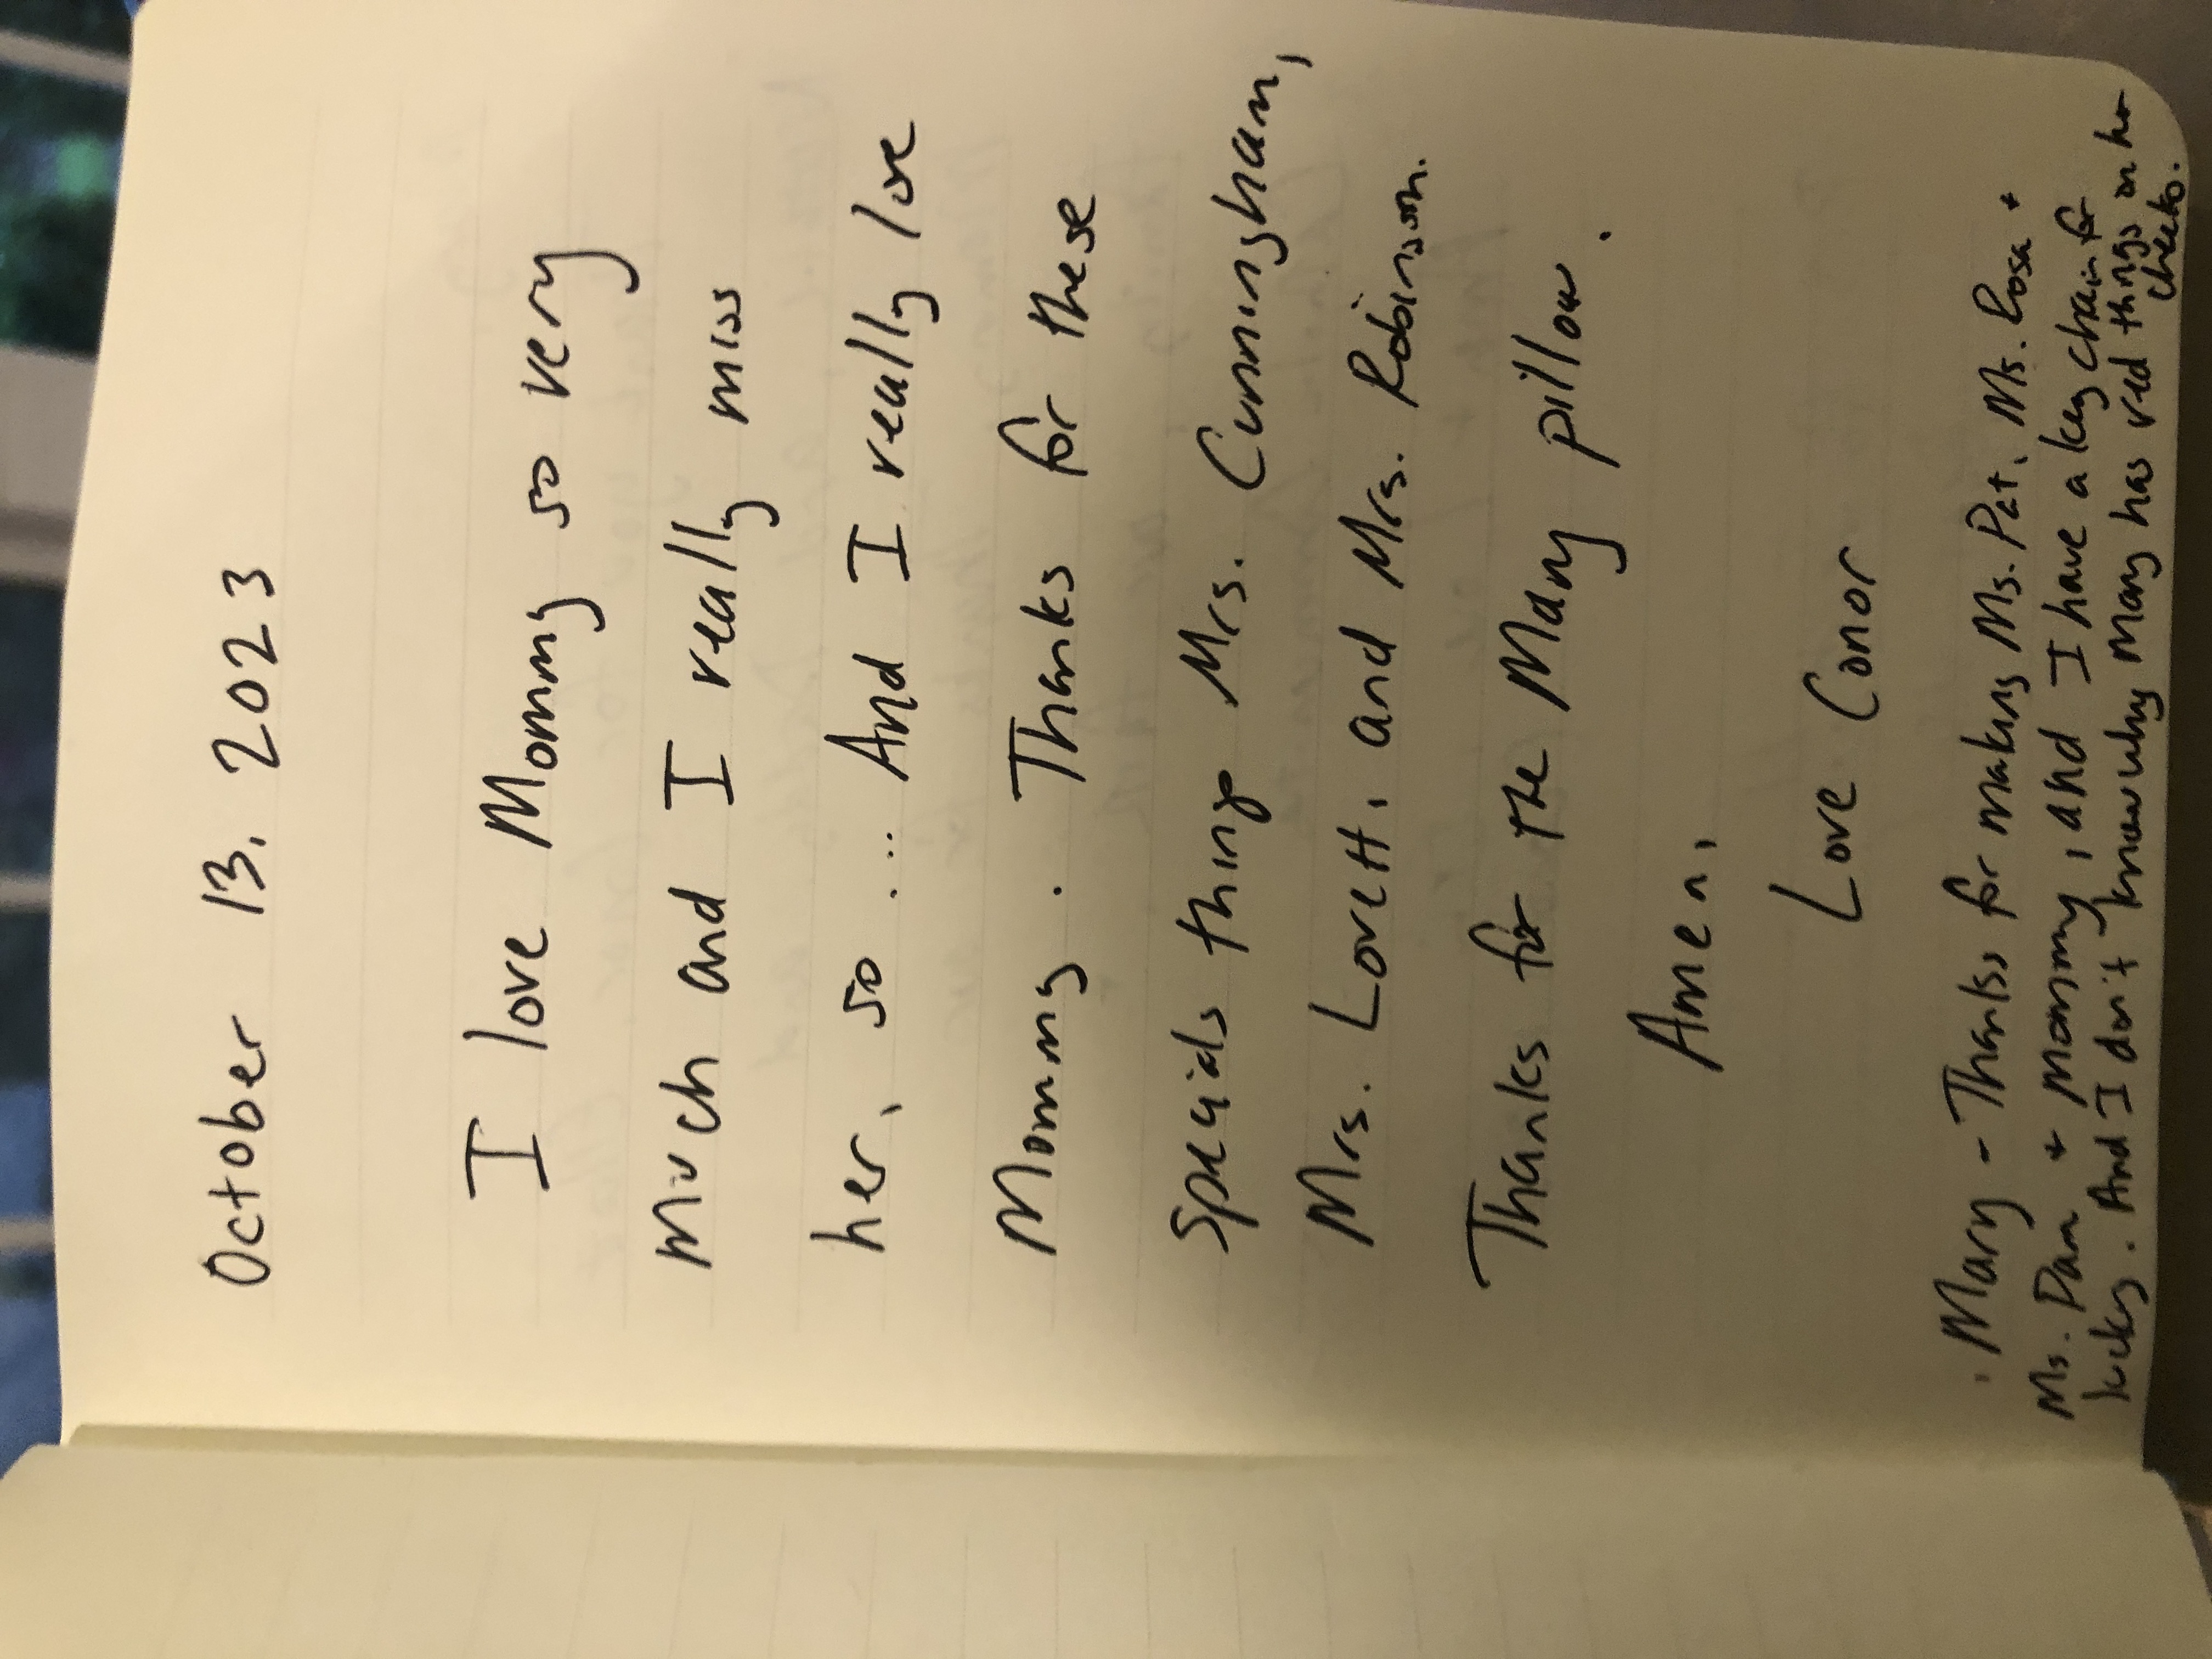 October 13, 2023
I love Mommy so very
much and I really miss
her, so ... And I really love
Mommy. Thanks for these
Specials thing Mrs. Cunningham,
Mrs. Lovett, and Mrs. Robinson.
Thanks for the Mary pillow.
Amen,
Love Conor
Mary - Thanks for making Ms. Pat, Ms. Rosa +
Ms. Pam + Mommy, and I have a key chain for
lucky. And I don't know why Mary has red things on her
cheeks.